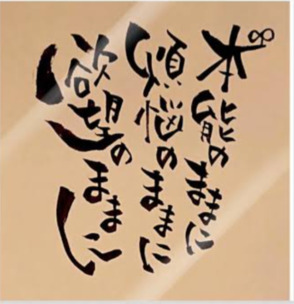 本能のままに
煩悩のままに
欲望のままに